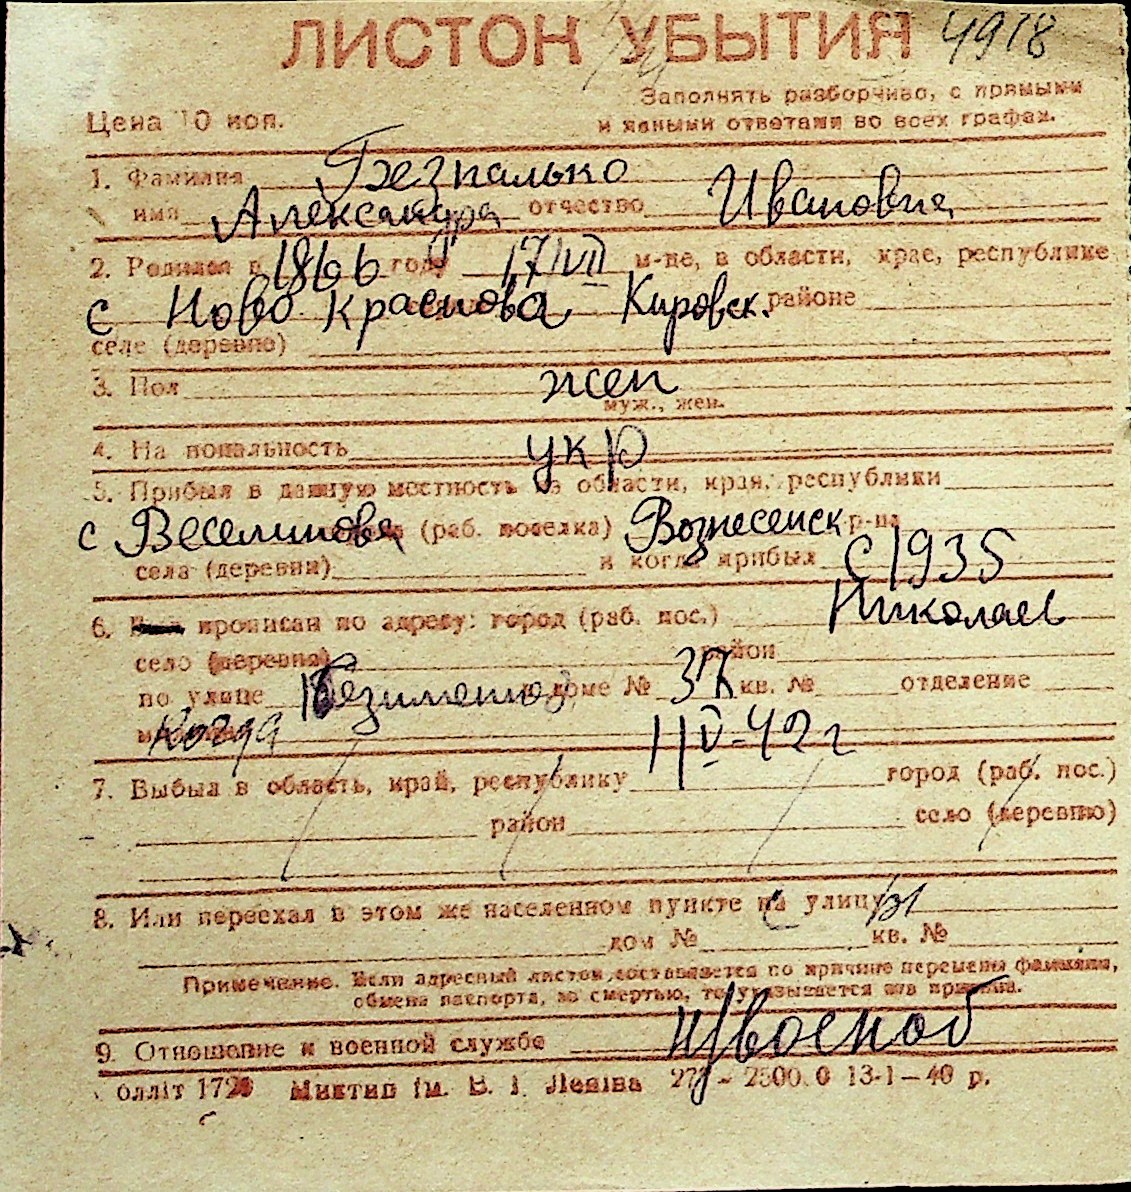 ЛИСТОК УБЫТИЯ 4918
Заполнять разборчиво, с прямыми
Цена 10 коп. и ясными ответами во всех графах.
1. Фамилия Безпалько
имя Александра отчество Ивановна
2. Родился в 1866 году 17/VII м-це, в области, крае, республике
с Ново Краснова Кировск. районе
селе (деревне)
3. Пол жен
муж., жен.
4. Национальность укр
5. Прибыл в данную местность из области, края, республики
с Веселиново (раб. поселка) Вознесенск р-на
села (деревни) и когда прибыл с 1935
6. прописан по адресу: город (раб. пос.) Николаев
село (деревня) район
по улице доме № 37 кв. № отделение
когда 1/V-42 г
7. Выбыл в область, край, республику город (раб. пос.)
район село (деревню)
8. Или переехал в этом же населенном пункте улицу
дом № кв. №
Примечание. Если адресный листок составляется по причине перемены фамилии,
обмена паспорта, за смертью, то указывается эта причина.
9. Отношение к военной службе н/военоб
олліт 1720 Миктип ім. В. І. Леніна 13-1-40 р.